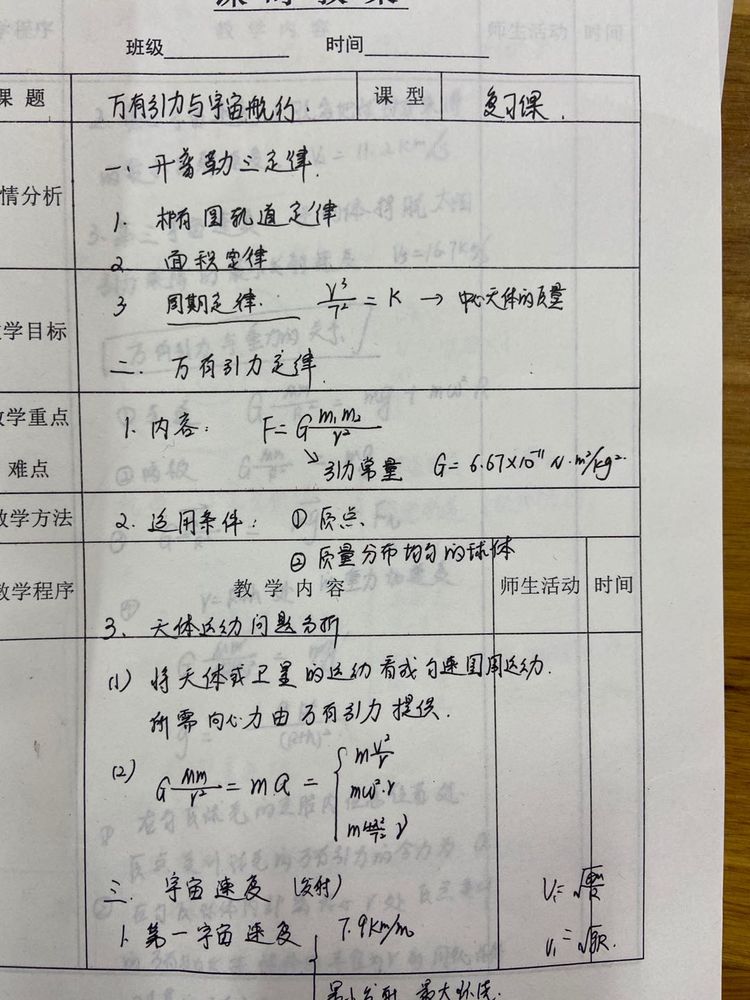 课时教案
班级 时间
课题 万有引力与宇宙航行. 课型 复习课.
情分析
一. 开普勒三定律.
1. 椭圆轨道定律
2. 面积定律
3 周期定律. r³/T² = K → 中心天体的质量
学目标
二. 万有引力定律.
教学重点
1. 内容: F=G m₁m₂/r²
难点
↘ 引力常量 G=6.67×10⁻¹¹ N·m²/kg².
教学方法
2. 适用条件: ① 质点.
② 质量分布均匀的球体
教学程序 教学内容 师生活动 时间
3. 天体运动问题分析
(1) 将天体或卫星的运动看成匀速圆周运动.
所需向心力由万有引力提供.
(2) G Mm/r² = ma = { m v²/r
mω²·r
m 4π²/T² r
三. 宇宙速度 (发射) V₁= √(GM/R)
1. 第一宇宙速度 { 7.9Km/m V₁=√gR.
最小发射 最大环绕.